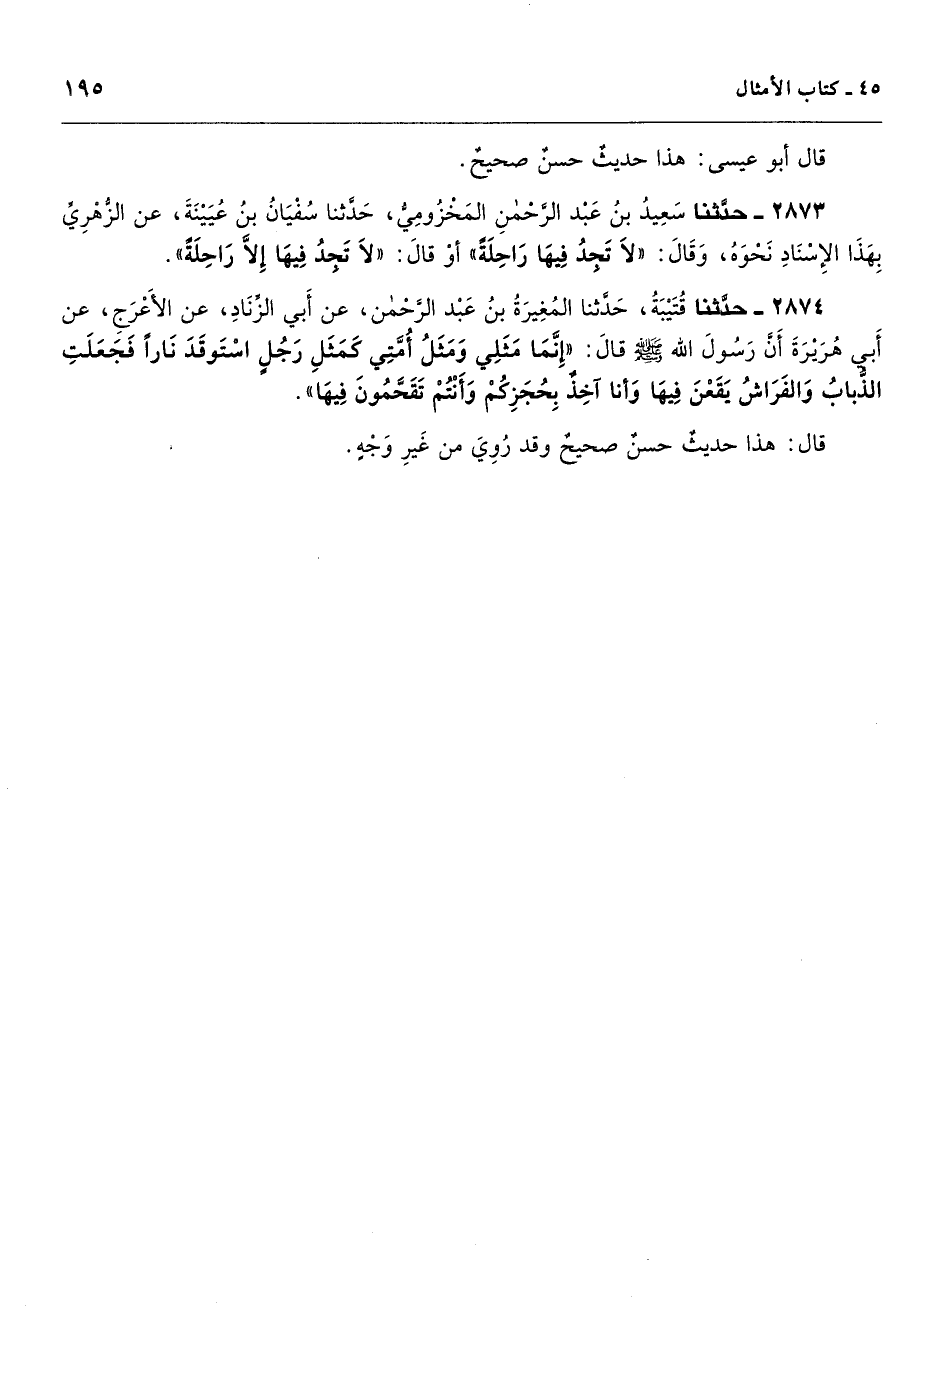 ٤٥ ـ كتاب الأمثال ١٩٥
قال أبو عيسى: هذا حديثٌ حسنٌ صحيحٌ.
٢٨٧٣ ـ حدَّثنا سَعِيدُ بنُ عَبْد الرَّحْمٰنِ المَخْزُومِيُّ، حَدَّثنا سُفْيَانُ بنُ عُيَيْنَةَ، عن الزُّهْرِيِّ
بِهَذَا الإسْنَادِ نَحْوَهُ، وَقَالَ: «لاَ تَجِدُ فِيهَا رَاحِلَةً» أوْ قالَ: «لاَ تَجِدُ فِيهَا إلاَّ رَاحِلَةً».
٢٨٧٤ ـ حدَّثنا قُتَيْبَةُ، حَدَّثنا المُغِيرَةُ بنُ عَبْد الرَّحْمٰن، عن أَبي الزِّنَادِ، عن الأعْرَجِ، عن
أَبي هُرَيْرَةَ أَنَّ رَسُولَ الله ﷺ قالَ: «إِنَّمَا مَثَلِي وَمَثَلُ أُمَّتِي كَمَثَلِ رَجُلٍ اسْتَوقَدَ نَاراً فَجَعَلَتِ
الذُّبابُ وَالفَرَاشُ يَقَعْنَ فِيهَا وَأنا آخِذٌ بِحُجَزِكُمْ وَأَنْتُمْ تَقَحَّمُونَ فِيهَا».
قال: هذا حديثٌ حسنٌ صحيحٌ وقد رُوِيَ من غَيرِ وَجْهٍ.